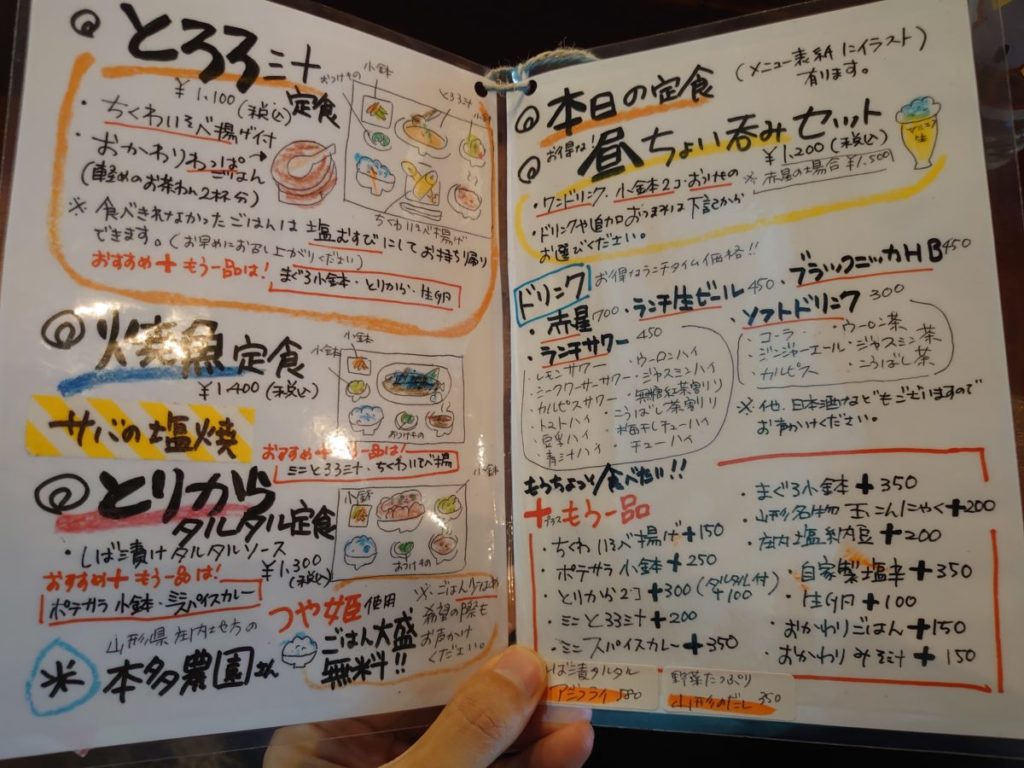 とろろ汁定食
¥1,100(税込)
・ちくわいそべ揚げ付
・おかわりわっぱごはん
(軽めのお茶わん2杯分)
※食べきれなかったごはんは塩むすびにしてお持ち帰り
できます。(お早めにお召し上がりください)
おすすめ+もう一品は!
まぐろ小鉢・とりから・生卵
おつけもの
小鉢
とろろ汁
小鉢
ちくわいそべ揚げ
焼魚定食
¥1,400(税込)
サバの塩焼
おすすめ+もう一品は!
ミニとろろ汁・ちくわいそべ揚
小鉢
小鉢
おつけもの
とりから
タルタル定食
・しば漬けタルタルソース
¥1,300
(税込)
おすすめ+もう一品は!
ポテサラ小鉢・ミニスパイスカレー
小鉢
小鉢
おつけもの
山形県庄内地方の
米 本多農園さん
つや姫使用
ごはん大盛
無料!!
希望の際も
お声かけ
ください。
本日の定食
(メニュー表紙にイラスト)
有ります。
お得な!
昼ちょい呑みセット
¥1,200(税込)
※赤星の場合¥1,500
・ワンドリンク・小鉢2コ・おつけもの
・ドリンクや追加おつまみは下記から
お選びください。
ドリンク
お得なランチタイム価格!!
・赤星 700
・ランチ生ビール 450
・ブラックニッカHB 450
・ランチサワー 450
・レモンサワー
・シークワーサーサワー
・カルピスサワー
・トマトハイ
・豆乳ハイ
・青汁ハイ
・ウーロンハイ
・ジャスミンハイ
・無糖紅茶割り
・こうばし茶割り
・梅干しチューハイ
・チューハイ
・ソフトドリンク 300
・コーラ
・ジンジャーエール
・カルピス
・ウーロン茶
・ジャスミン茶
・こうばし茶
※他、日本酒などもございますので
お声かけください。
もうちょっと食べたい!!
+プラスもう一品
・ちくわいそべ揚げ+150
・ポテサラ小鉢+250
・とりから2コ+300(タルタル付+100)
・ミニとろろ汁+200
・ミニスパイスカレー+350
・まぐろ小鉢+350
・山形名物玉こんにゃく+200
・庄内塩納豆+200
・自家製塩辛+350
・生卵+100
・おかわりごはん+150
・おかわりみそ汁+150
しば漬タルタル
アジフライ
野菜たっぷり
山形のだし 350